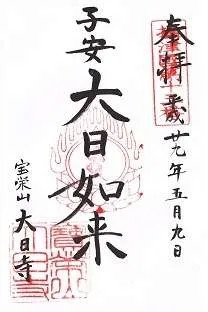 奉拝
平成廿九年五月九日
子安
大日如来
宝栄山
大日寺